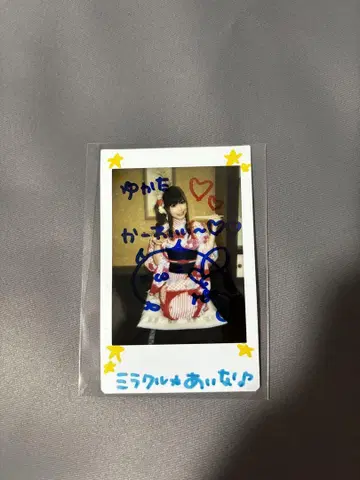 ゆかた
かーわいい〜♡
ミラクル★あいな♪